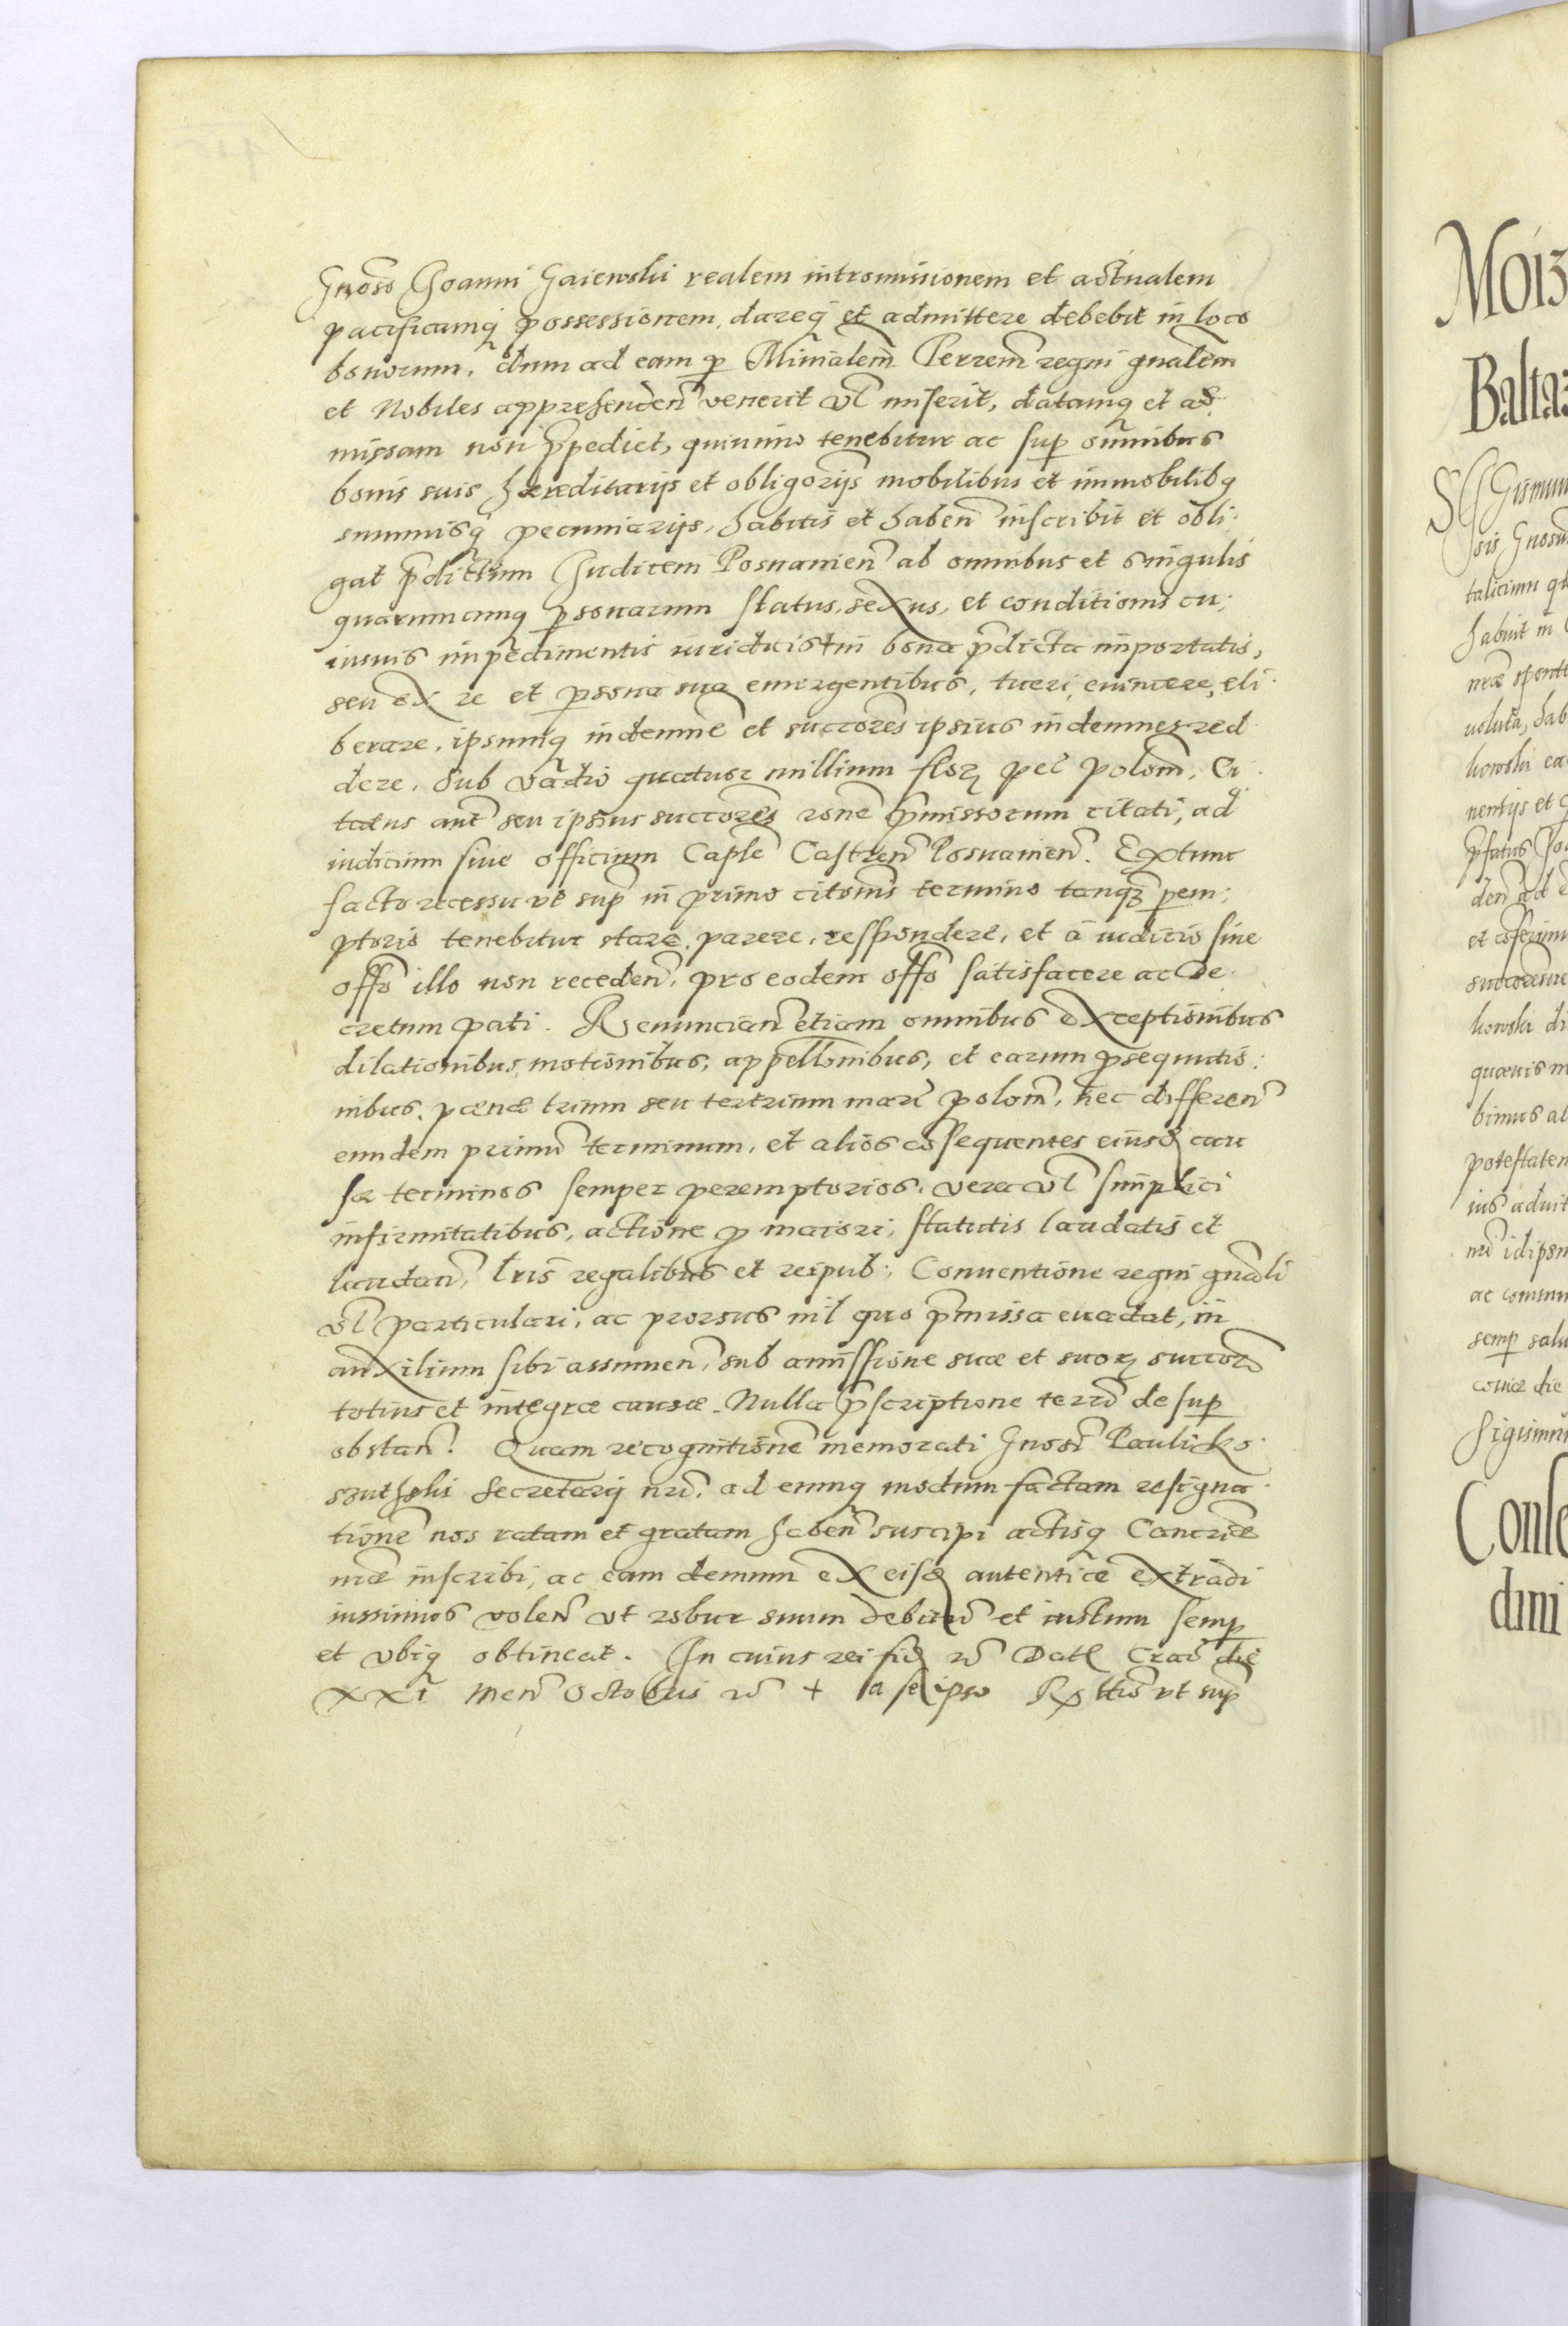 Gnoso Joanni Gaiewski realem intromissionem et actualem
pacificamq possessionem, dareq et admittere debebit in loco
bonorum, dum ad eam p Minialem Terrem regni gnalem
et Nobiles apprehenden venerit vl miserit, datamq et ad
missam non ꝑpediet, quinimo tenebitur ac sup omnibus
bonis suis hæreditarijs et obligorijs mobilibus et immobilibq
summisq pecuniarijs, habitis et haben inscribit et obli:
gat pdictum Judicem Posnanien ab omnibus et singulis
quarumcunq psonarum status, sexus, et conditionis cu;
iusuis impedimentis iuridicis in bona pdicta importatis,
seu ex re et psona sua emergentibus, tueri, euincere, eli
berare, ipsumq indemne et succores ipsius indemnes red
dere, Sub vadio quatuor millium floꝝ pec polom, Ci
tatus aut seu ipsius succores rone pmissorum citati, ad
iudicium siue officium Caple Castren Posnanien. Extunc
facto recessu vt sup in primo citonis termino tanqꝫ pem;
ptorio tenebitur stare, parere, respondere, et a iudicio siue
offo illo non receden, pro eodem offo satisfacere ac de
cretum pati. Renuncian etiam omnibus exceptionibus
dilationibus, motionibus, appellonibus, et earum psequutio:
nibus, pœnæ trium seu tertrium marc polom, nec differen
eundem primu terminum, et alios cosequentes eiusd cau
sæ terminos semper peremptorios, vera vl simplici
infirmitatibus, actione p maiori, statutis laudatis et
laudan, lris regalibus et reipub; Conuentione regni gnali
vl particulari, ac prorsus nil quo pmissa euadat, in
auxilium sibi assumen, sub amissione suæ et suoꝝ succoꝝ
totius et integræ causæ. Nulla pscriptione terri de sup
obstan. Quam recognitione memorati Gnosi Paulicko
Secretarij nri, ad eumq modum factam resigna
tione nos ratam et gratam haben suscipi actisq Cancriæ
nræ inscribi, ac eam demum ex eisd autentice extradi
iussimus volen vt robur suum debitu et iustum semp
et vbiq obtineat. In cuius rei fid ꝛc Dat Crac die
xxi Men Octobris ꝛc + a seipso Rx ttio vt sup